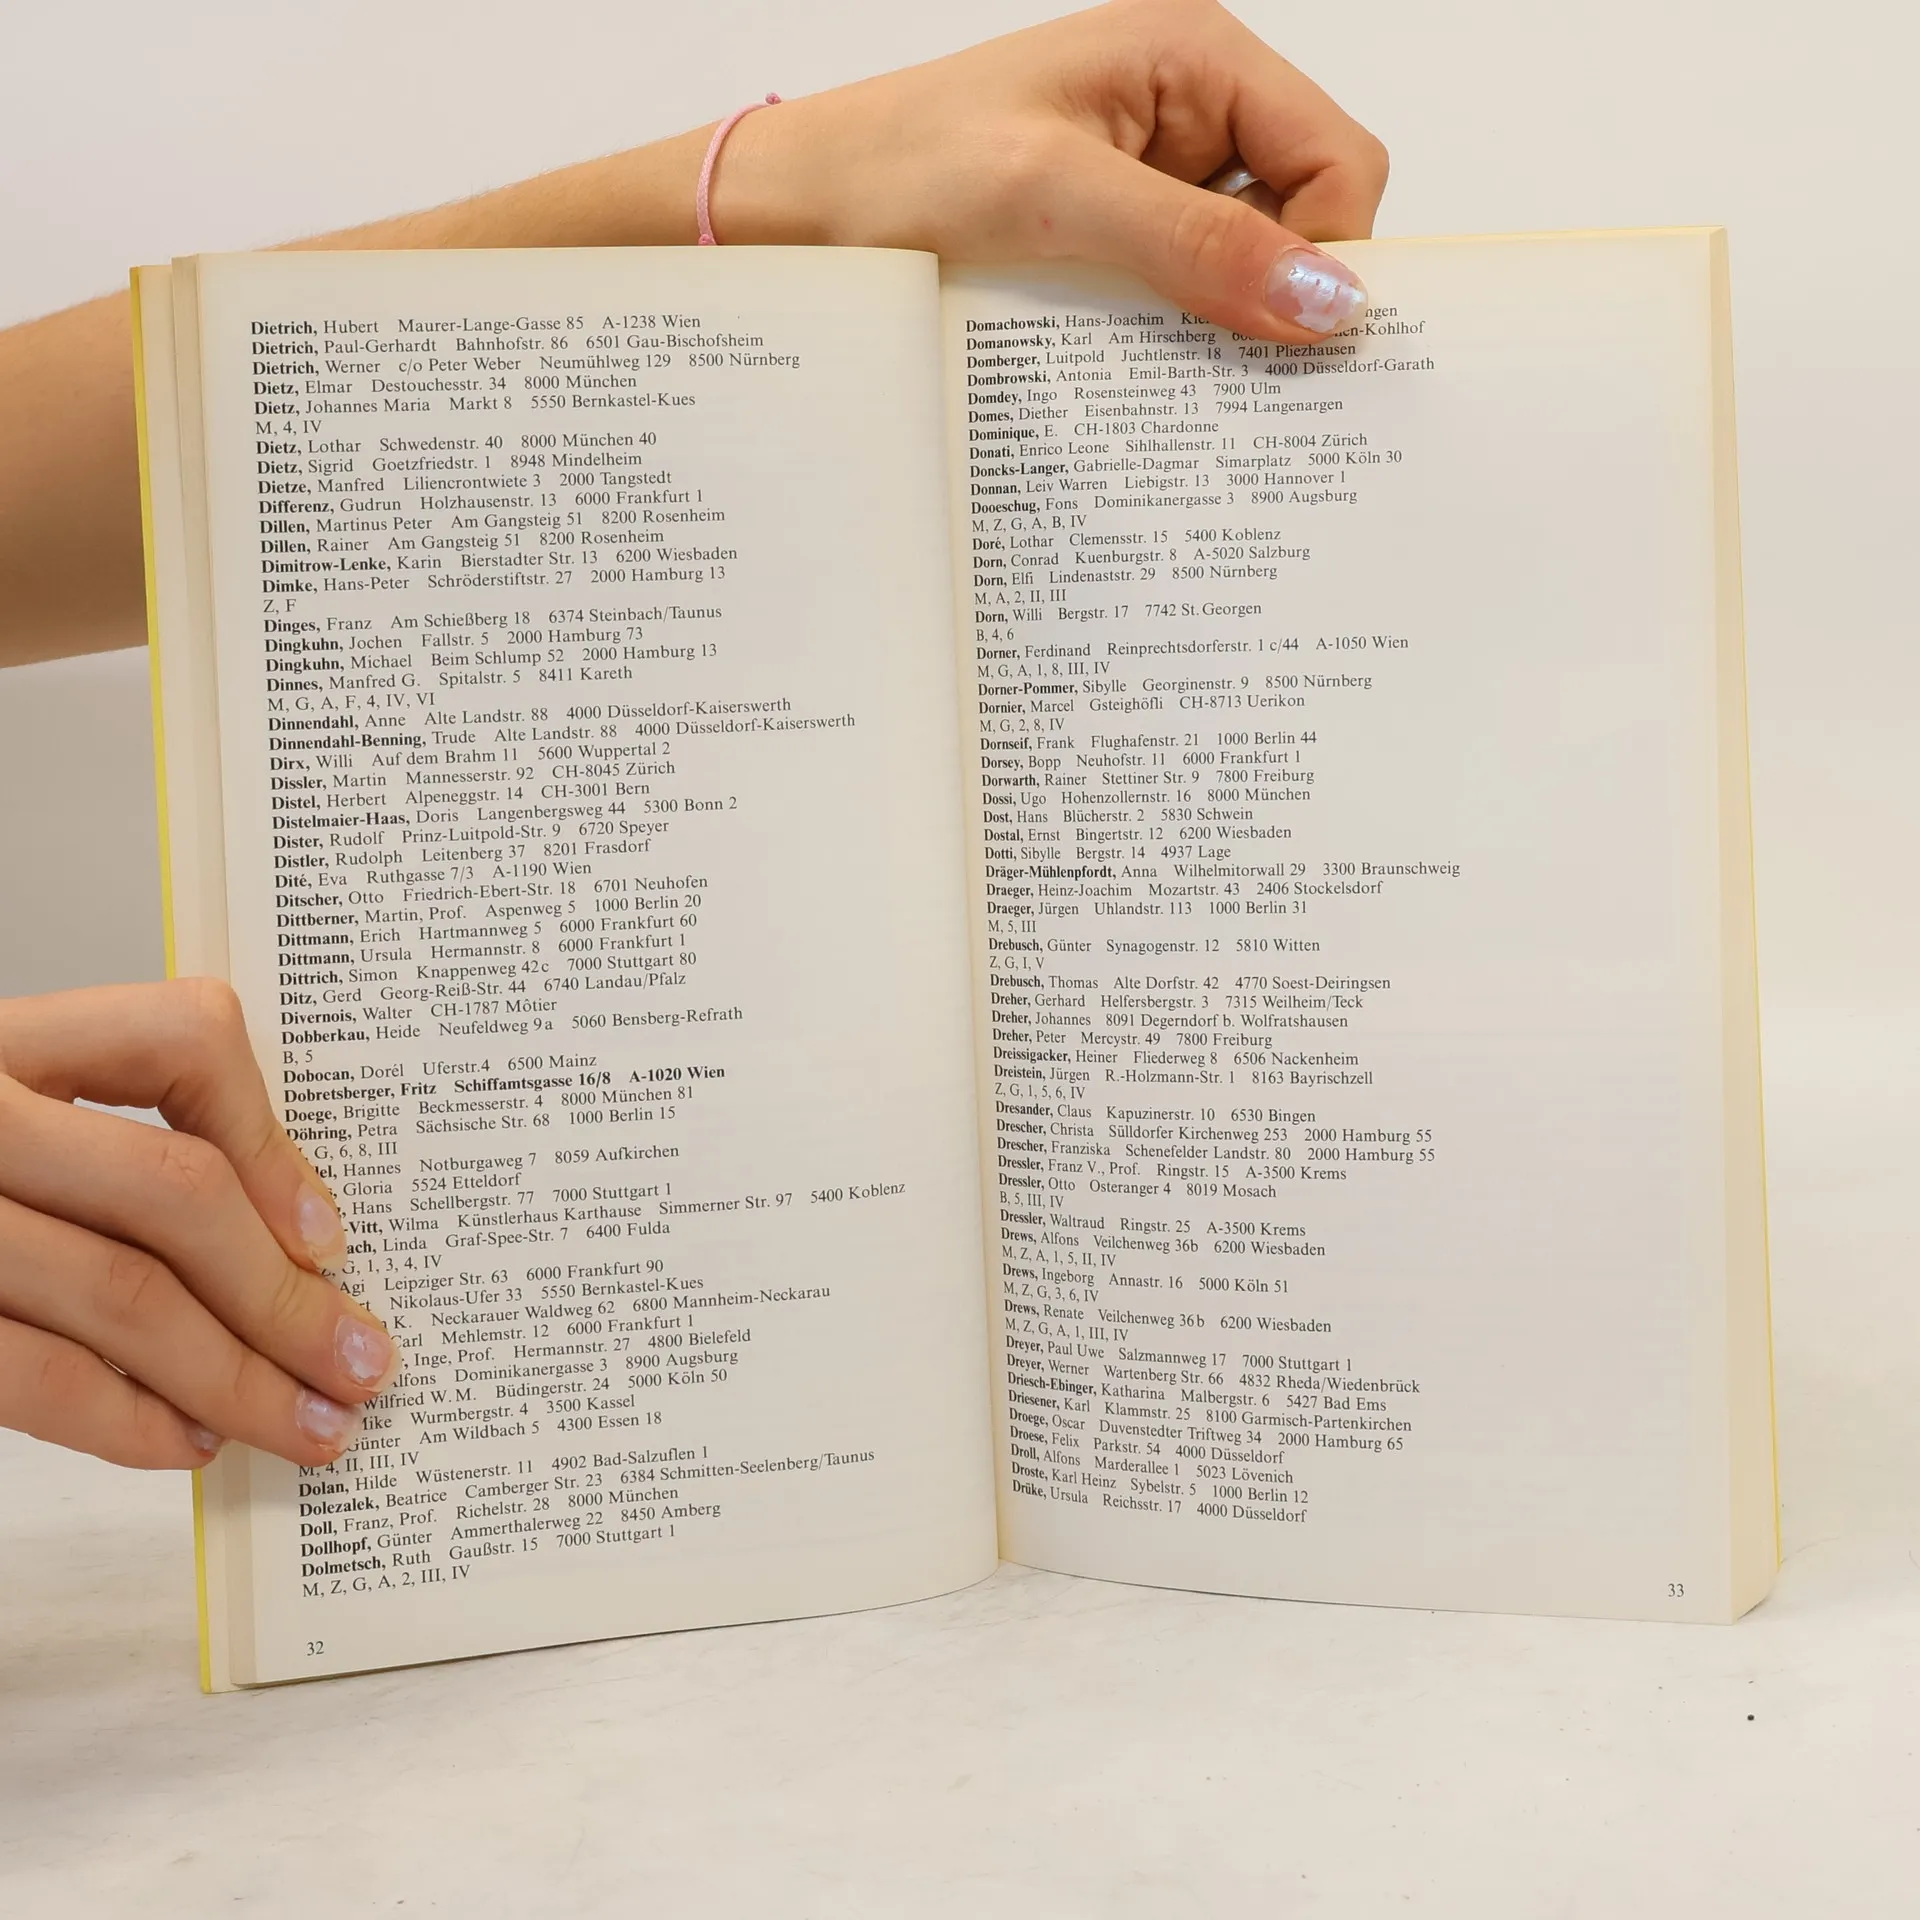 Dietrich, Hubert Maurer-Lange-Gasse 85 A-1238 Wien
Dietrich, Paul-Gerhardt Bahnhofstr. 86 6501 Gau-Bischofsheim
Dietrich, Werner c/o Peter Weber Neumühlweg 129 8500 Nürnberg
Dietz, Elmar Destouchesstr. 34 8000 München
Dietz, Johannes Maria Markt 8 5550 Bernkastel-Kues
M, 4, IV
Dietz, Lothar Schwedenstr. 40 8000 München 40
Dietz, Sigrid Goetzfriedstr. 1 8948 Mindelheim
Dietze, Manfred Liliencrontwiete 3 2000 Tangstedt
Differenz, Gudrun Holzhausenstr. 13 6000 Frankfurt 1
Dillen, Martinus Peter Am Gangsteig 51 8200 Rosenheim
Dillen, Rainer Am Gangsteig 51 8200 Rosenheim
Dimitrow-Lenke, Karin Bierstadter Str. 13 6200 Wiesbaden
Dimke, Hans-Peter Schröderstiftstr. 27 2000 Hamburg 13
Z, F
Dinges, Franz Am Schießberg 18 6374 Steinbach/Taunus
Dingkuhn, Jochen Fallstr. 5 2000 Hamburg 73
Dingkuhn, Michael Beim Schlump 52 2000 Hamburg 13
Dinnes, Manfred G. Spitalstr. 5 8411 Kareth
M, G, A, F, 4, IV, VI
Dinnendahl, Anne Alte Landstr. 88 4000 Düsseldorf-Kaiserswerth
Dinnendahl-Benning, Trude Alte Landstr. 88 4000 Düsseldorf-Kaiserswerth
Dirx, Willi Auf dem Brahm 11 5600 Wuppertal 2
Dissler, Martin Mannesserstr. 92 CH-8045 Zürich
Distel, Herbert Alpeneggstr. 14 CH-3001 Bern
Distelmaier-Haas, Doris Langenbergsweg 44 5300 Bonn 2
Dister, Rudolf Prinz-Luitpold-Str. 9 6720 Speyer
Distler, Rudolph Leitenberg 37 8201 Frasdorf
Dité, Eva Ruthgasse 7/3 A-1190 Wien
Ditscher, Otto Friedrich-Ebert-Str. 18 6701 Neuhofen
Dittberner, Martin, Prof. Aspenweg 5 1000 Berlin 20
Dittmann, Erich Hartmannweg 5 6000 Frankfurt 60
Dittmann, Ursula Hermannstr. 8 6000 Frankfurt 1
Dittrich, Simon Knappenweg 42c 7000 Stuttgart 80
Ditz, Gerd Georg-Reiß-Str. 44 6740 Landau/Pfalz
Divernois, Walter CH-1787 Môtier
Dobberkau, Heide Neufeldweg 9a 5060 Bensberg-Refrath
B, 5
Dobocan, Dorél Uferstr.4 6500 Mainz
Dobretsberger, Fritz Schiffamtsgasse 16/8 A-1020 Wien
Doege, Brigitte Beckmesserstr. 4 8000 München 81
Döhring, Petra Sächsische Str. 68 1000 Berlin 15
G, 6, 8, III
Hannes Notburgaweg 7 8059 Aufkirchen
Gloria 5524 Etteldorf
Hans Schellbergstr. 77 7000 Stuttgart 1
-Vitt, Wilma Künstlerhaus Karthause Simmerner Str. 97 5400 Koblenz
ach, Linda Graf-Spee-Str. 7 6400 Fulda
G, 1, 3, 4, IV
Agi Leipziger Str. 63 6000 Frankfurt 90
Nikolaus-Ufer 33 5550 Bernkastel-Kues
K. Neckarauer Waldweg 62 6800 Mannheim-Neckarau
Carl Mehlemstr. 12 6000 Frankfurt 1
Inge, Prof. Hermannstr. 27 4800 Bielefeld
Alfons Dominikanergasse 3 8900 Augsburg
Wilfried W. M. Büdingerstr. 24 5000 Köln 50
Mike Wurmbergstr. 4 3500 Kassel
Günter Am Wildbach 5 4300 Essen 18
M, 4, II, III, IV
Dolan, Hilde Wüstenerstr. 11 4902 Bad-Salzuflen 1
Dolezalek, Beatrice Camberger Str. 23 6384 Schmitten-Seelenberg/Taunus
Doll, Franz, Prof. Richelstr. 28 8000 München
Dollhopf, Günter Ammerthalerweg 22 8450 Amberg
Dolmetsch, Ruth Gaußstr. 15 7000 Stuttgart 1
M, Z, G, A, 2, III, IV
32
Domachowski, Hans-Joachim
Domanowsky, Karl Am Hirschberg
Domberger, Luitpold Juchtlenstr. 18 7401 Pliezhausen
Dombrowski, Antonia Emil-Barth-Str. 3 4000 Düsseldorf-Garath
Domdey, Ingo Rosensteinweg 43 7900 Ulm
Domes, Diether Eisenbahnstr. 13 7994 Langenargen
Dominique, E. CH-1803 Chardonne
Donati, Enrico Leone Sihlhallenstr. 11 CH-8004 Zürich
Doncks-Langer, Gabrielle-Dagmar Simarplatz 5000 Köln 30
Donnan, Leiv Warren Liebigstr. 13 3000 Hannover 1
Dooeschug, Fons Dominikanergasse 3 8900 Augsburg
M, Z, G, A, B, IV
Doré, Lothar Clemensstr. 15 5400 Koblenz
Dorn, Conrad Kuenburgstr. 8 A-5020 Salzburg
Dorn, Elfi Lindenaststr. 29 8500 Nürnberg
M, A, 2, II, III
Dorn, Willi Bergstr. 17 7742 St. Georgen
B, 4, 6
Dorner, Ferdinand Reinprechtsdorferstr. 1 c/44 A-1050 Wien
M, G, A, 1, 8, III, IV
Dorner-Pommer, Sibylle Georginenstr. 9 8500 Nürnberg
Dornier, Marcel Gsteighöfli CH-8713 Uerikon
M, G, 2, 8, IV
Dornseif, Frank Flughafenstr. 21 1000 Berlin 44
Dorsey, Bopp Neuhofstr. 11 6000 Frankfurt 1
Dorwarth, Rainer Stettiner Str. 9 7800 Freiburg
Dossi, Ugo Hohenzollernstr. 16 8000 München
Dost, Hans Blücherstr. 2 5830 Schwein
Dostal, Ernst Bingertstr. 12 6200 Wiesbaden
Dotti, Sibylle Bergstr. 14 4937 Lage
Dräger-Mühlenpfordt, Anna Wilhelmitorwall 29 3300 Braunschweig
Draeger, Heinz-Joachim Mozartstr. 43 2406 Stockelsdorf
Draeger, Jürgen Uhlandstr. 113 1000 Berlin 31
M, 5, III
Drebusch, Günter Synagogenstr. 12 5810 Witten
Z, G, I, V
Drebusch, Thomas Alte Dorfstr. 42 4770 Soest-Deiringsen
Dreher, Gerhard Helfersbergstr. 3 7315 Weilheim/Teck
Dreher, Johannes 8091 Degerndorf b. Wolfratshausen
Dreher, Peter Mercystr. 49 7800 Freiburg
Dreissigacker, Heiner Fliederweg 8 6506 Nackenheim
Dreistein, Jürgen R.-Holzmann-Str. 1 8163 Bayrischzell
Z, G, 1, 5, 6, IV
Dresander, Claus Kapuzinerstr. 10 6530 Bingen
Drescher, Christa Sülldorfer Kirchenweg 253 2000 Hamburg 55
Drescher, Franziska Schenefelder Landstr. 80 2000 Hamburg 55
Dressler, Franz V., Prof. Ringstr. 15 A-3500 Krems
Dressler, Otto Osteranger 4 8019 Mosach
B, 5, III, IV
Dressler, Waltraud Ringstr. 25 A-3500 Krems
Drews, Alfons Veilchenweg 36b 6200 Wiesbaden
M, Z, A, 1, 5, II, IV
Drews, Ingeborg Annastr. 16 5000 Köln 51
M, Z, G, 3, 6, IV
Drews, Renate Veilchenweg 36b 6200 Wiesbaden
M, Z, G, A, 1, III, IV
Dreyer, Paul Uwe Salzmannweg 17 7000 Stuttgart 1
Dreyer, Werner Wartenberg Str. 66 4832 Rheda/Wiedenbrück
Driesch-Ebinger, Katharina Malbergstr. 6 5427 Bad Ems
Driesener, Karl Klammstr. 25 8100 Garmisch-Partenkirchen
Droege, Oscar Duvenstedter Triftweg 34 2000 Hamburg 65
Droese, Felix Parkstr. 54 4000 Düsseldorf
Droll, Alfons Marderallee 1 5023 Lövenich
Droste, Karl Heinz Sybelstr. 5 1000 Berlin 12
Drüke, Ursula Reichsstr. 17 4000 Düsseldorf
33